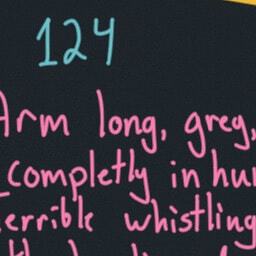 124
Arm long, grey,
completly in hu
errible whistling